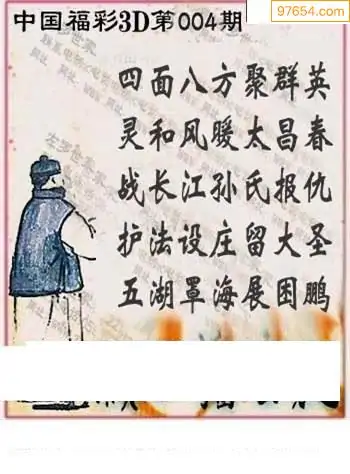 97654.com
中国福彩3D第004期
四面八方聚群英
灵和风暖太昌春
战长江孙氏报仇
护法设庄留大圣
五湖罩海展困鹏